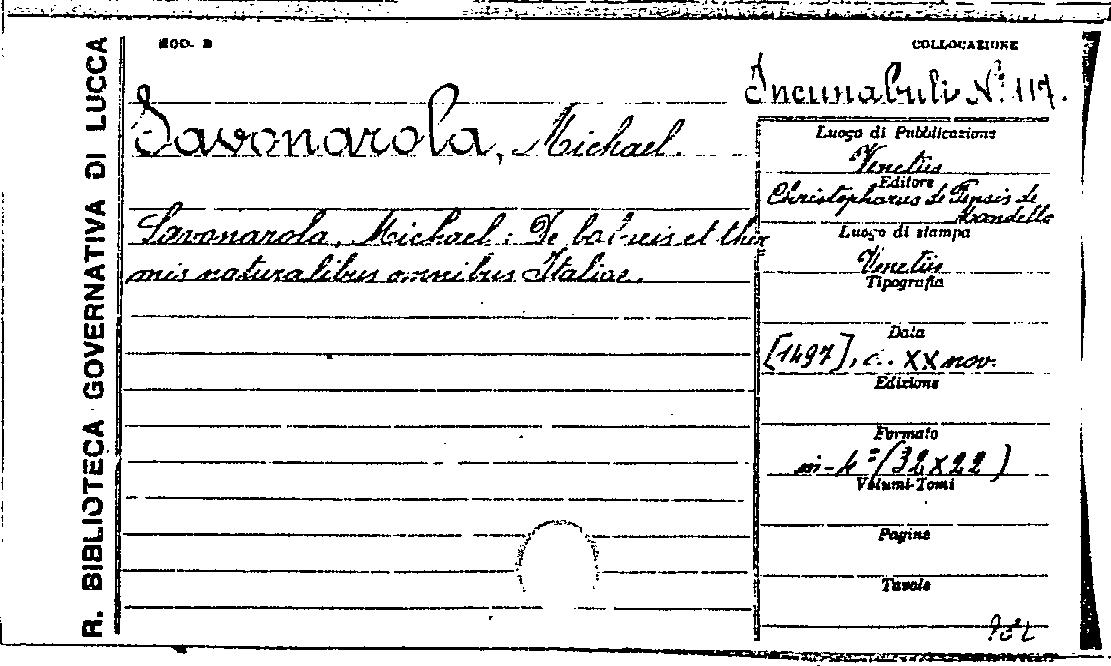 R. BIBLIOTECA GOVERNATIVA DI LUCCA
MOD. B
COLLOCAZIONE
Incunabuli N.º 117.
Savonarola, Michael.
Savonarola, Michael: De balneis et ther
mis naturalibus omnibus Italiae.
Luogo di Pubblicazione
Venetiis
Editore
Christophorus de Pensis de
Mandello
Luogo di stampa
Venetiis
Tipografia
Data
[1497], XX nov.
Edizione
Formato
in-4º (32x22)
Volumi-Tomi
Pagine
Tavole